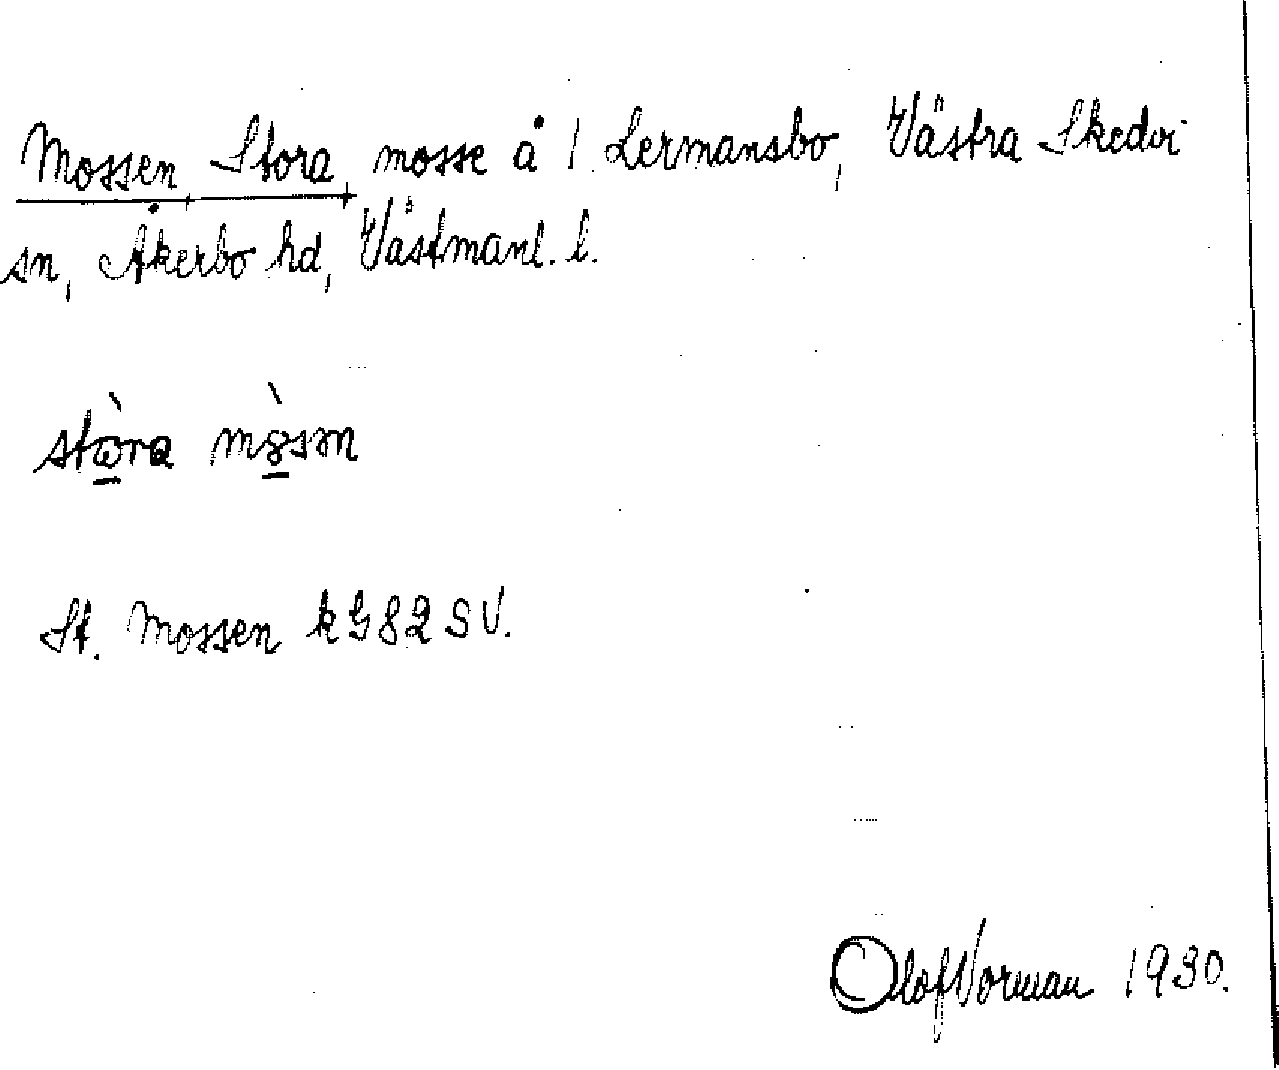 Mossen, Stora, mosse å 1 Lermansbo, Västra Skedvi
sn, Åkerbo hd, Västmanl. l.
stòra mòsm
St. Mossen kG82SV.
Olof Norman 1930.